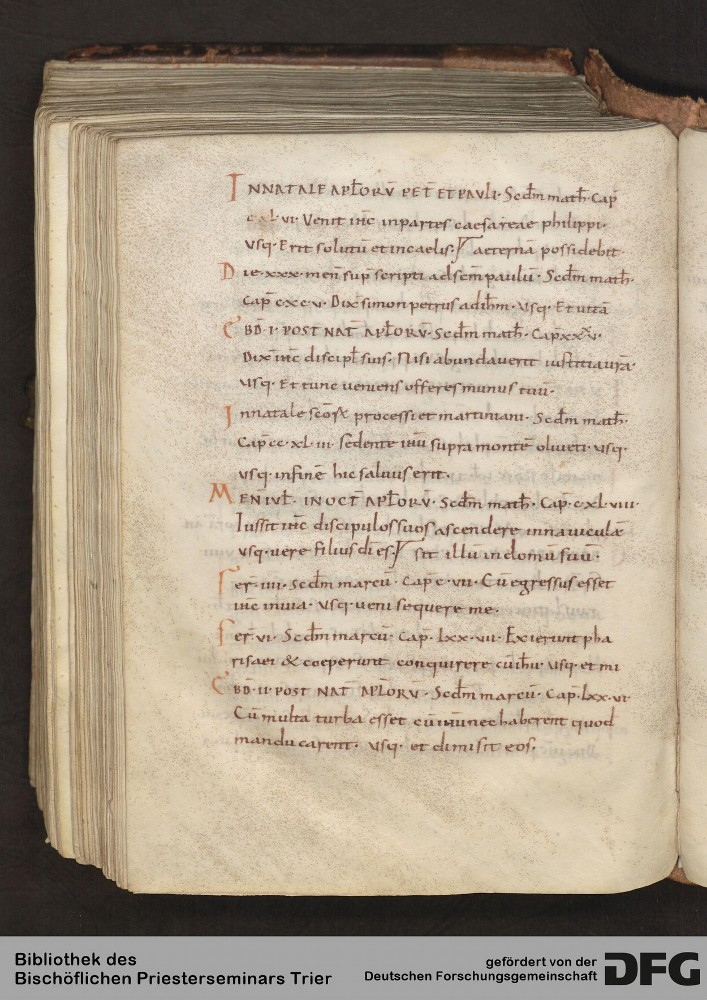 INNATALE APŁORŪ PET̄ ET PAVLI· Scdm̄ math̄· Cap̄
c·xl·vi· Venit ih̄c inpartes caesareae philippi·
Vsq· Erit solutū et incaelis· aeternā possidebit·
Die·xxx· men̄ sup̄ scripti ad sc̄m paulū· Scdm̄ math̄·
Cap̄ c·xc·v· Dix̄ simon petrus ad ih̄m· Vsq· Et uitā
EBD̄·I· POST NAT̄ APŁORŪ· Scdm̄ math̄· Cap̄ xxv·
Dix̄ ih̄c discipł suis· Nisi abundauerit iustitia urā·
Vsq· Et tunc ueniens offeres munus tuū·
Innatale sc̄orꝝ processi et martiniani· Scdm̄ math̄·
Cap̄ cc·xl·iii· sedente ihū supra montē oliueti· Vsq·
Vsq· infinē hic saluus erit·
MEN IVL̄· IN OCT̄ APŁORŪ· Scdm̄ math̄· Cap̄·c·xl·viii·
Iussit ih̄c discipulos suos ascendere innauiculā
Vsq· uere filius dī es· sit illū in domū suū·
Fer̄·iiii· Scdm̄ marcū· Cap̄·c·vii· Cū egressus esset
ih̄c inuia· Vsq· ueni sequere me·
Fer̄·vi· Scdm̄ marcū· Cap̄·lxx·vii· Exierunt pha
risaei & coeperunt conquirere cū ihū· Vsq· et mi
EBD̄·II· POST NAT̄ APŁORŪ· Scdm̄ marcū· Cap̄·lxx·vi·
Cū multa turba esset cū ihū nec haberent quod
manducarent· Vsq· et dimisit eos·
Bibliothek des
Bischöflichen Priesterseminars Trier
gefördert von der
Deutschen Forschungsgemeinschaft
DFG